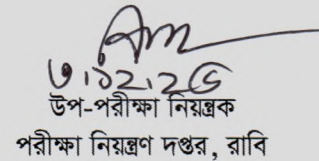 ৩.১২.২৫
উপ-পরীক্ষা নিয়ন্ত্রক
পরীক্ষা নিয়ন্ত্রণ দপ্তর, রাবি